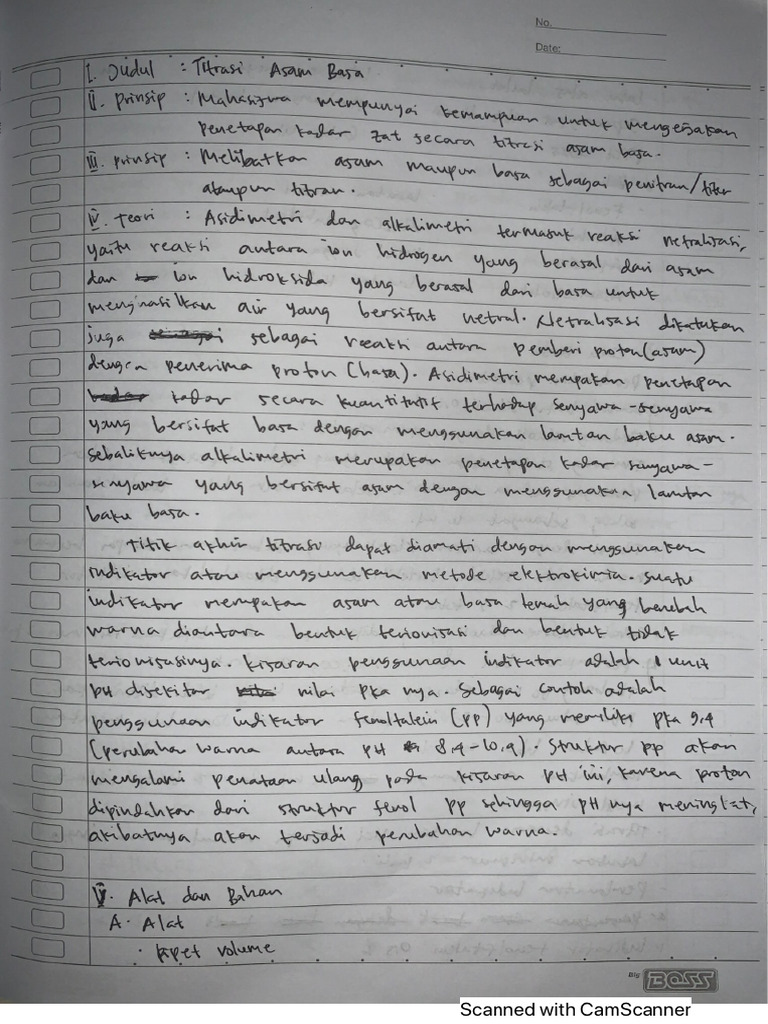 No.
Date:
I. Judul : Titrasi Asam Basa
II. prinsip : Mahasiswa mempunyai kemampuan untuk mengerjakan
penetapan kadar zat secara titrasi asam basa.
III. prinsip : Melibatkan asam maupun basa sebagai penitran/titer
ataupun titran.
IV. Teori : Asidimetri dan alkalimetri termasuk reaksi netralisasi,
yaitu reaksi antara ion hidrogen yang berasal dari asam
dan ion hidroksida yang berasal dari basa untuk
menghasilkan air yang bersifat netral. Netralisasi dikatakan
juga sebagai reaksi antara pemberi proton (asam)
dengan penerima proton (basa). Asidimetri merupakan penetapan
kadar secara kuantitatif terhadap senyawa-senyawa
yang bersifat basa dengan menggunakan larutan baku asam.
Sebaliknya alkalimetri merupakan penetapan kadar senyawa-
senyawa yang bersifat asam dengan menggunakan larutan
baku basa.
Titik akhir titrasi dapat diamati dengan menggunakan
indikator atau menggunakan metode elektrokimia. suatu
indikator merupakan asam atau basa lemah yang berubah
warna diantara bentuk terionisasi dan bentuk tidak
terionisasinya. kisaran penggunaan indikator adalah 1 unit
pH disekitar nilai pka nya. Sebagai contoh adalah
penggunaan indikator fenoltalein (pp) yang memiliki pka 9,4
(perubahan warna antara pH 8,4-10,4). Struktur pp akan
mengalami penataan ulang pada kisaran pH ini, karena proton
dipindahkan dari struktur fenol pp sehingga pH nya meningkat,
akibatnya akan terjadi perubahan warna.
V. Alat dan Bahan
A. Alat
· Pipet volume
Big BOSS
Scanned with CamScanner